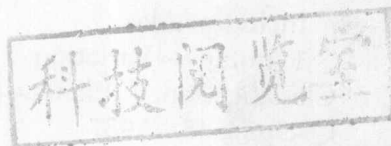 科技阅览室